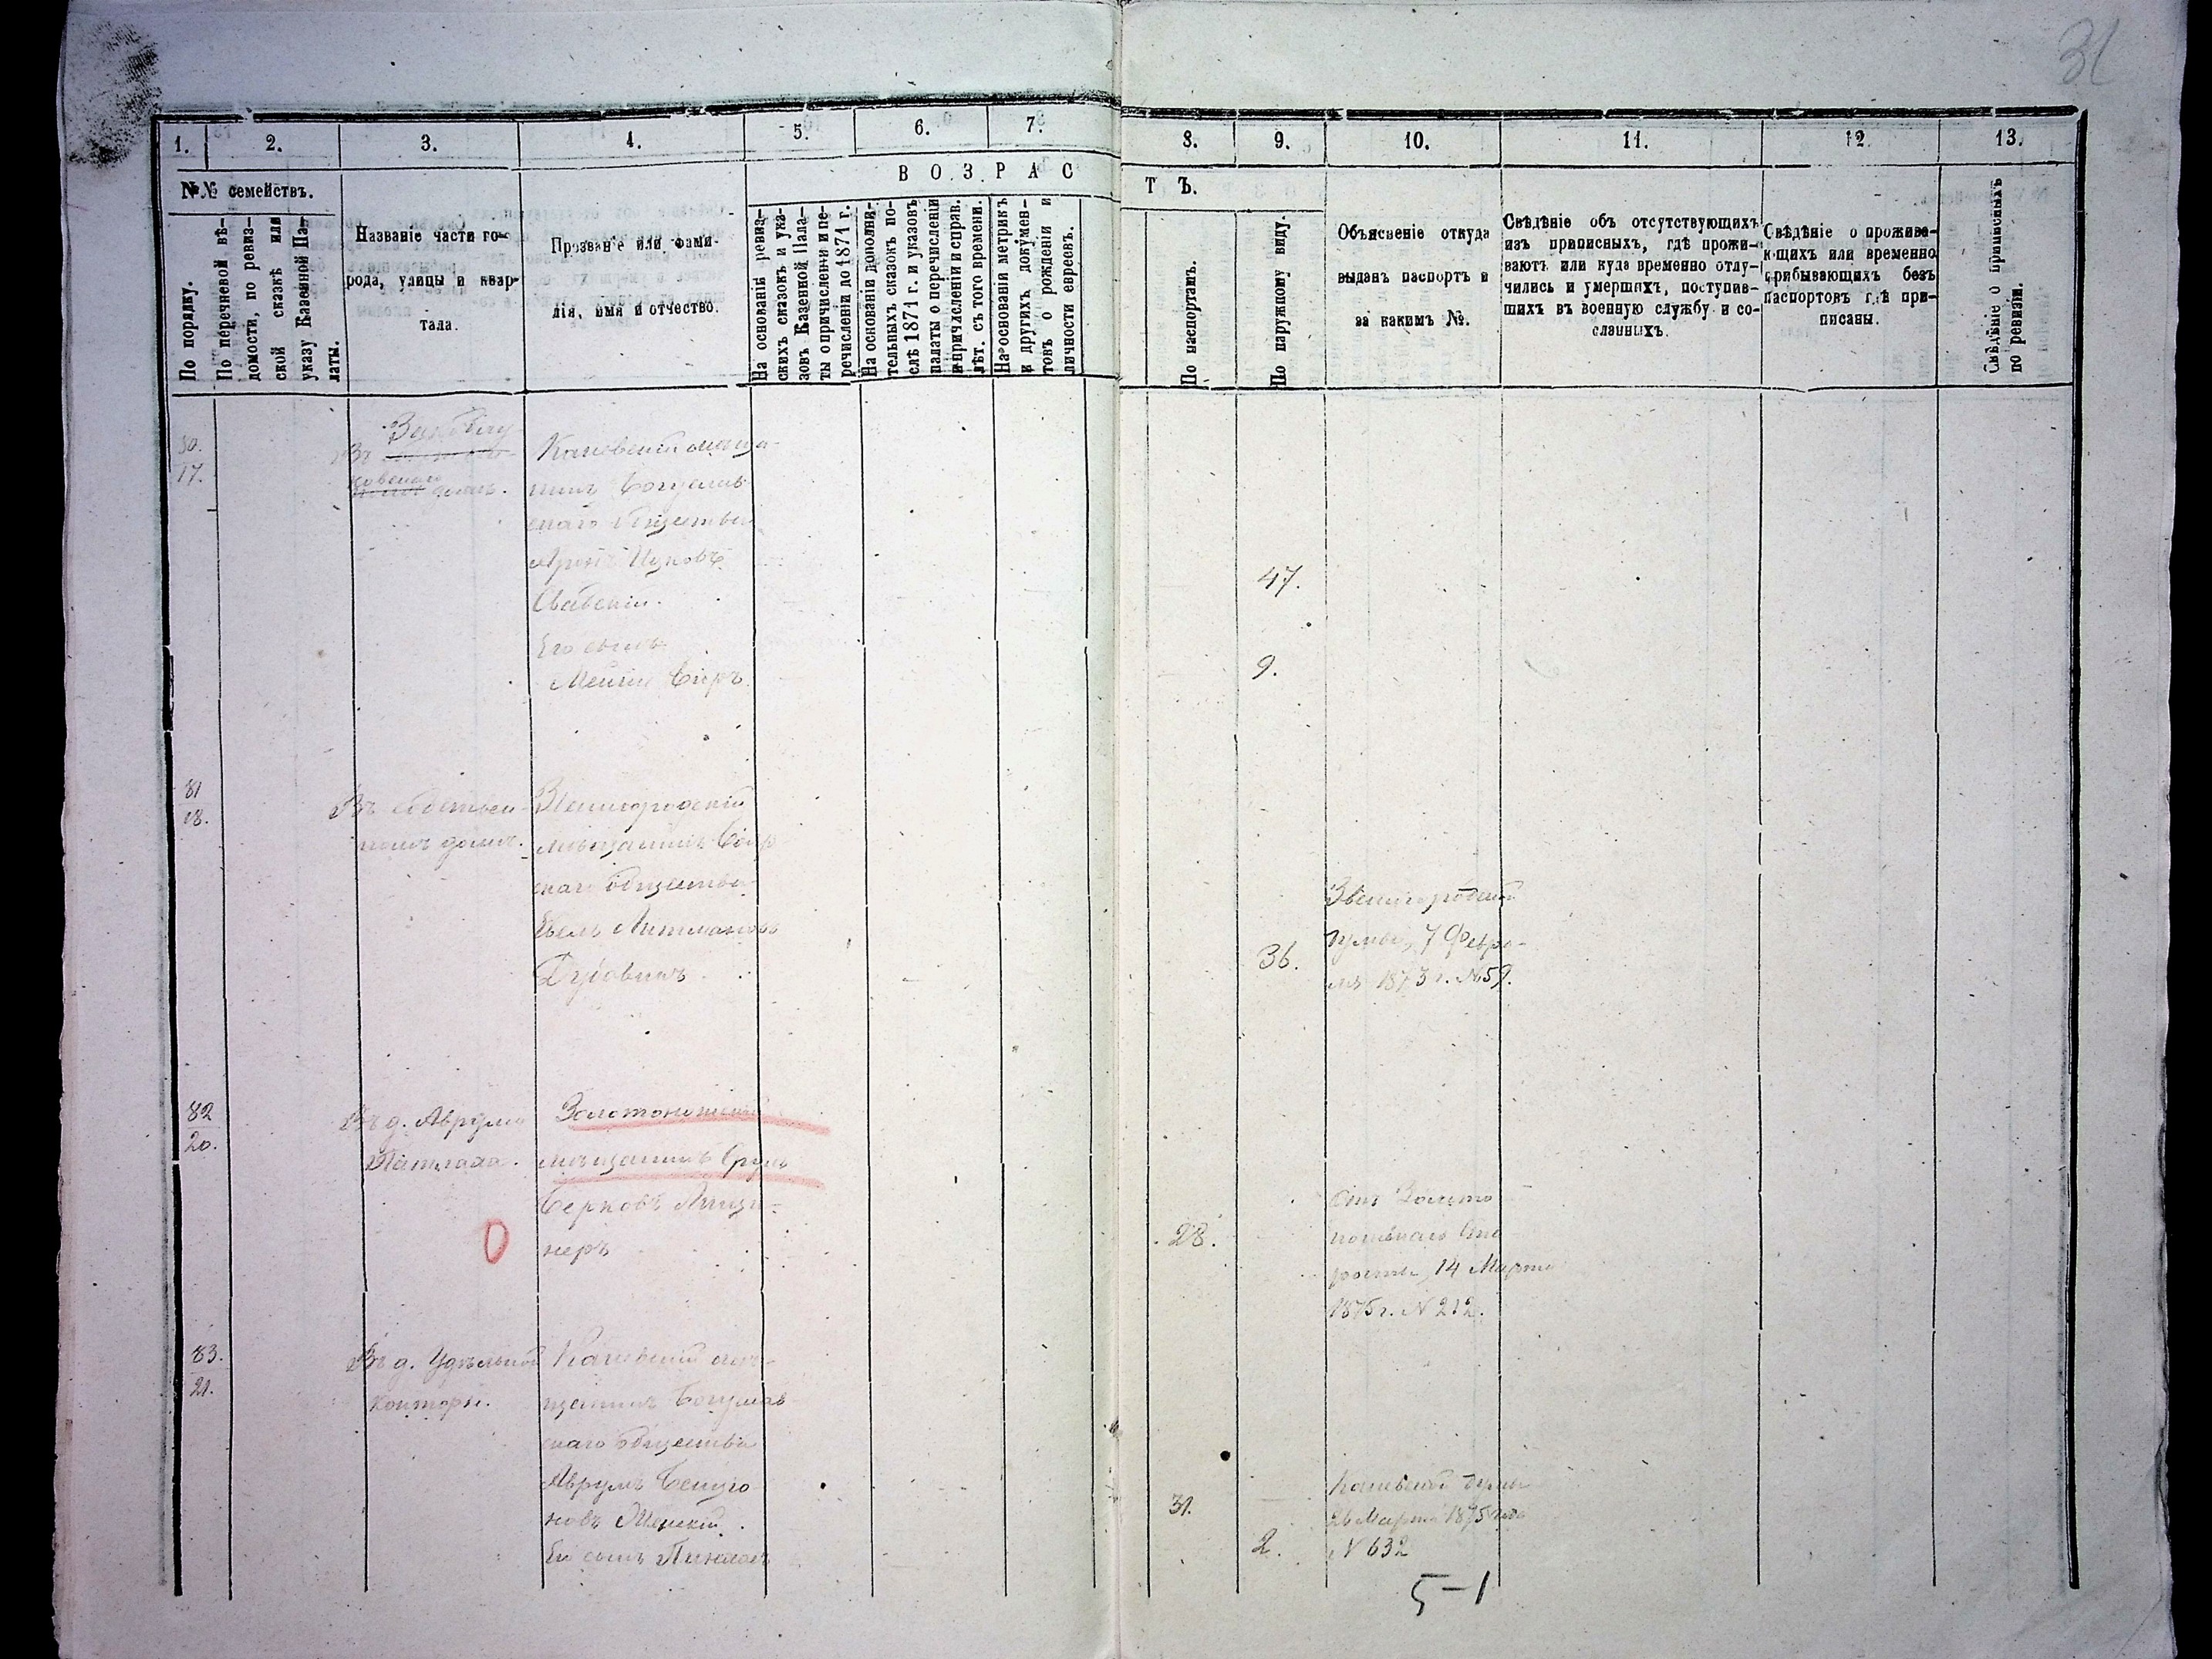 31
1. 2. 3. 4. 5. 6. 7. 8. 9. 10. 11. 12. 13.
№№ семействъ.
По порядку.
По перечневой вѣ-
домости, по ревиз-
ской сказкѣ или
указу Казенной Па-
латы.
Названіе части го-
рода, улицы и квар-
тала.
Прозваніе или фами-
лія, имя и отчество.
ВОЗРАСТЪ.
На основаніи ревиз-
скихъ сказокъ и ука-
зовъ Казенной Пала-
ты о причисленіи и пе-
речисленіи до 1871 г.
На основаніи дополни-
тельныхъ сказокъ по-
слѣ 1871 г. и указовъ
палаты о перечисленіи
и причисленіи и справ.
лѣт. съ того времени.
На основаніи метрикъ
и другихъ докумен-
товъ о рожденіи и
личности евреевъ.
По паспортамъ.
По наружному виду.
Объясненіе откуда
выданъ паспортъ и
за какимъ №.
Свѣдѣніе объ отсутствующихъ
изъ приписныхъ, гдѣ прожи-
ваютъ или куда временно отлу-
чились и умершихъ, поступив-
шихъ въ военную службу и со-
сланныхъ.
Свѣдѣніе о прожива-
ющихъ или временно
прибывающихъ безъ
паспортовъ гдѣ при-
писаны.
Свѣдѣніе о приписныхъ
по ревизіи.
17.
Въ
домѣ.
Каневскій мѣща-
нинъ Богуслав
скаго общества
Аронъ Ицковъ
47.
Его сынъ
Беръ
9.
81
18.
Въ собствен-
номъ домѣ.
Звенигородскій
мѣщанинъ
скаго общества
Литмановъ
36.
Звенигородской
думы, 7 Февра-
ля 1873 г. №59.
82
20.
Въ д. Аврума
Патлаха.
Золотоношскій
мѣщанинъ Сруль
Берковъ
неръ
28.
Отъ Золото
ношскаго Ста
росты, 14 Марта
1875 г. N 212.
83.
21.
Въ д. Удѣльной
Конторы.
Каневскій мѣ-
щанинъ Богуслав
скаго общества
Аврумъ Бенціо
новъ
31.
Каневской думы
26 Марта 1875 года
Его сынъ
2.
N 632
5-1